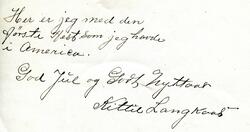 Her er jeg med den
første Hest som jeg havde
i America.
God Jul og Godt Nyttaar
Kittil Langkaas